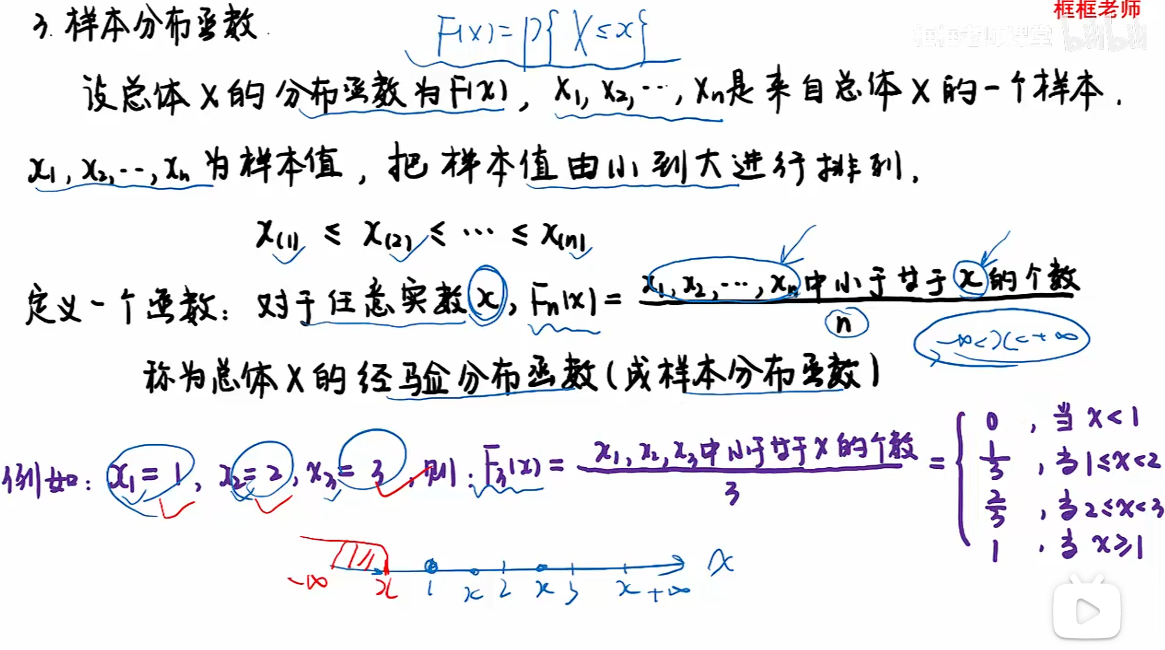 框框老师
3. 样本分布函数. F(x)=P{X≤x}
bilibili
设总体X的分布函数为F(x), X₁, X₂, …, Xn是来自总体X的一个样本.
x₁, x₂, …, xn为样本值, 把样本值由小到大进行排列.
x(1) ≤ x(2) ≤ … ≤ x(n)
定义一个函数: 对于任意实数x, Fn(x)= x₁, x₂, …, xn中小于等于x的个数 / n
-∞<x<+∞
称为总体X的经验分布函数(或样本分布函数)
例如: x₁=1, x₂=2, x₃=3, 则: F₃(x)= x₁, x₂, x₃中小于等于x的个数 / 3 =
0, 当x<1
1/3, 当1≤x<2
2/3, 当2≤x<3
1, 当x≥1
-∞ x 1 x 2 x 3 x +∞ x